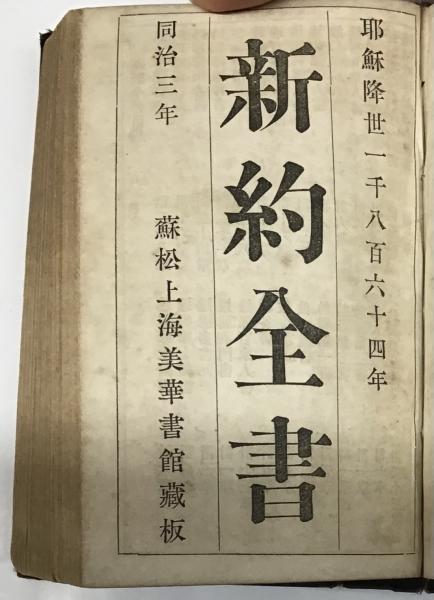 耶穌降世一千八百六十四年
新約全書
同治三年
蘇松上海美華書館藏板